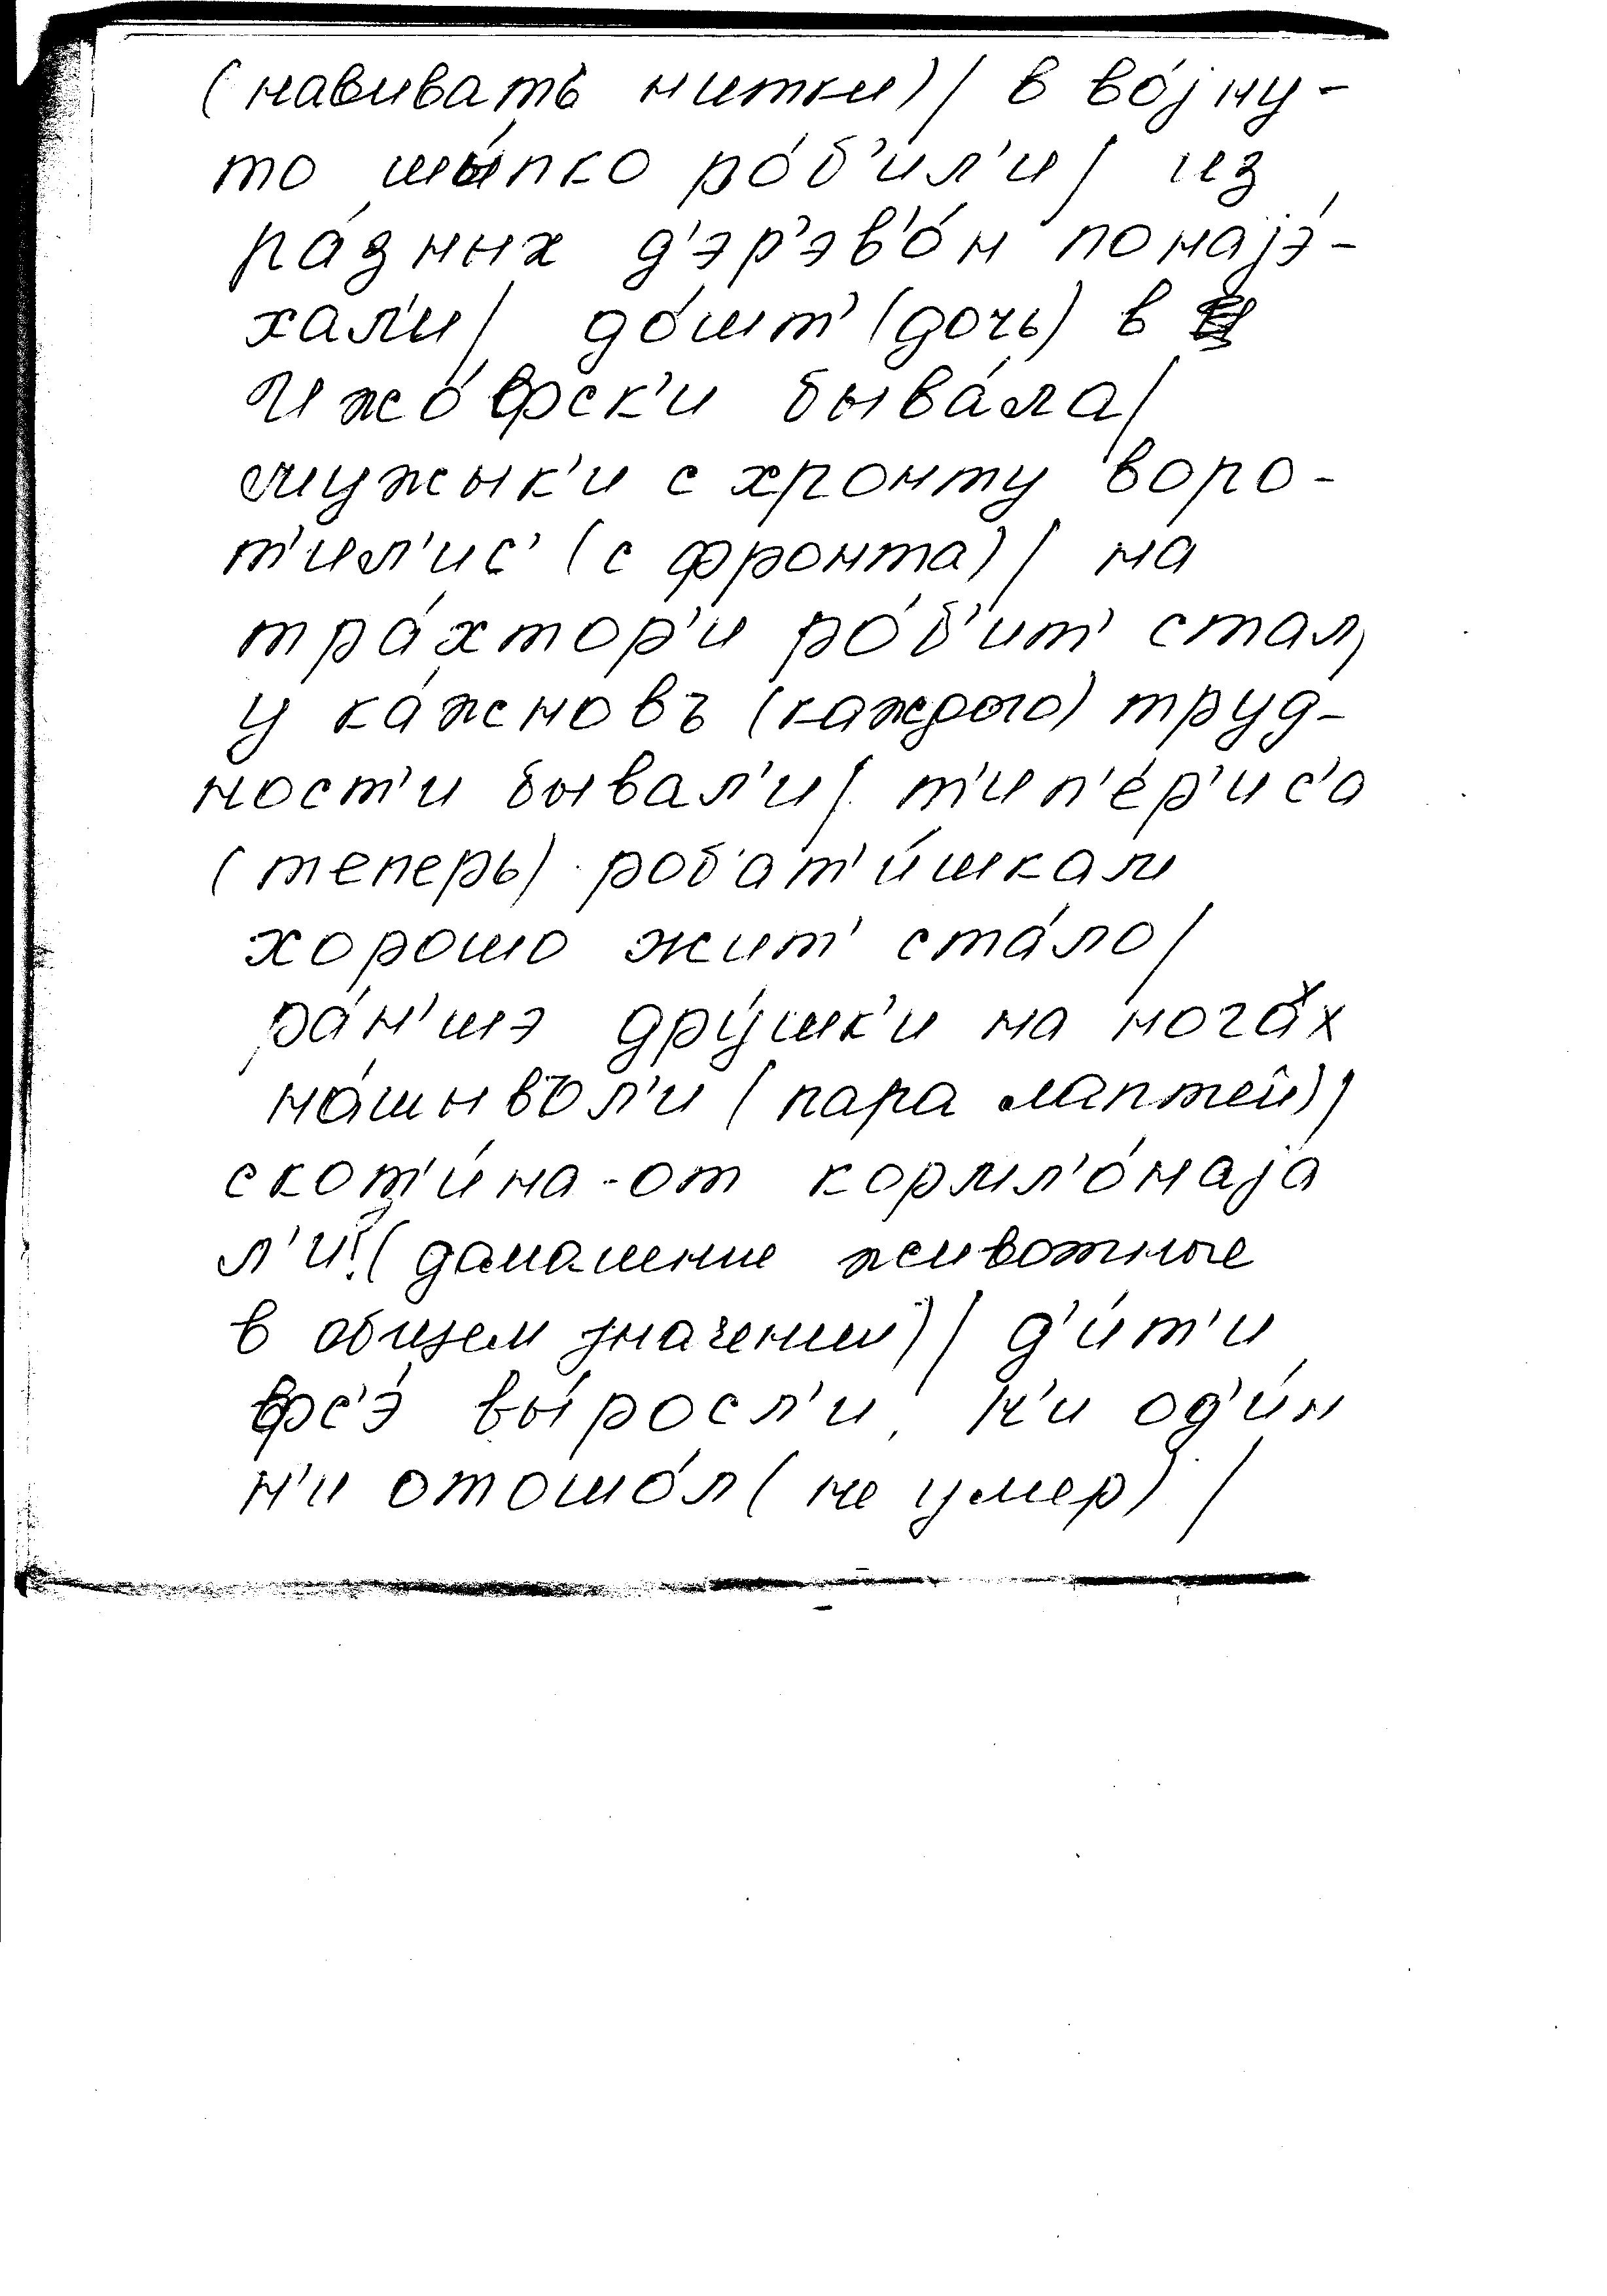 (навивать нитки) / в во́jну-
то шы́пко ро́б'ил'и / из
ра́зных д'эр'эв'о́н понаjэ́-
хал'и / до́шт' (дочь) в
Ижо́фск'и быва́ла /
мужык'и с хронту воро-
т'ил'ис' (с фронта) / на
тра́хтор'и ро́б'ит' стал,
у ка́жновъ (каждого) труд-
ност'и бывал'и / т'ип'е́р'ис'а
(теперь) роб'ат'и́шкам
хорошо жит' ста́ло /
ра́н'шэ дру́шк'и на нога́х
на́шывъл'и (пара лаптей) /
скот'и́на-от кормл'о́наjа
л'и? (домашние животные
в общем значении) / д'и́т'и
фс'э́ вы́росл'и, н'и од'и́н
н'и отошо́л (не умер) /